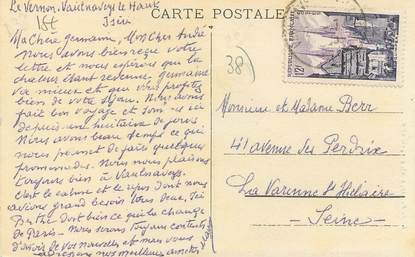 Le Vernon. Vaulnaveys le Haut
Isère
CARTE POSTALE
38)
Ma chère Germaine, Mon cher André
Nous avons bien reçu votre
lettre et nous espérons que la
chaleur étant revenue, Germaine
va mieux et que vous profitez
bien de votre séjour. Nous avons
fait bon voyage et sommes ici
depuis une huitaine de jours
Nous avons beau temps ce qui
nous permet de faire quelques
promenades. Nous nous plaisons
toujours bien à Vaulnaveys.
C'est le calme et le repos dont nous
avions grand besoin tous deux, ici
dort bien ce qui la change
de Paris. Nous serons toujours contents
d'avoir de vos nouvelles et
nos meilleures amitiés
12F
Monsieur et Madame Berr
41 avenue des Perdrix
La Varenne St Hilaire
Seine